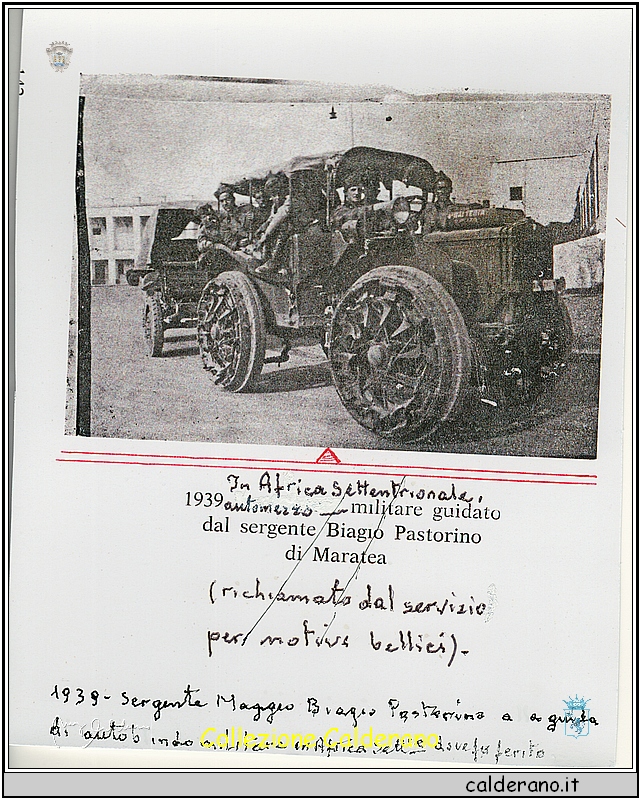 In Africa Settentrionale,
1939 automezzo militare guidato
dal sergente Biagio Pastorino
di Maratea
(richiamato dal servizio
per motivi bellici).
1939 - Sergente Maggio Biagio Pastorino a guida
di autob militare in Africa Sett. dove fu ferito
Collezione Calderano
calderano.it